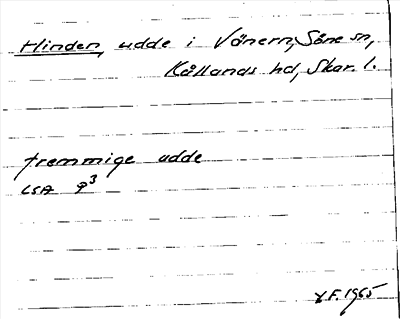 Hinden, udde i Vänern, Såne sn,
Kållands hd, Skar. l.
fremmige udde
LSA φ³
F. 1965